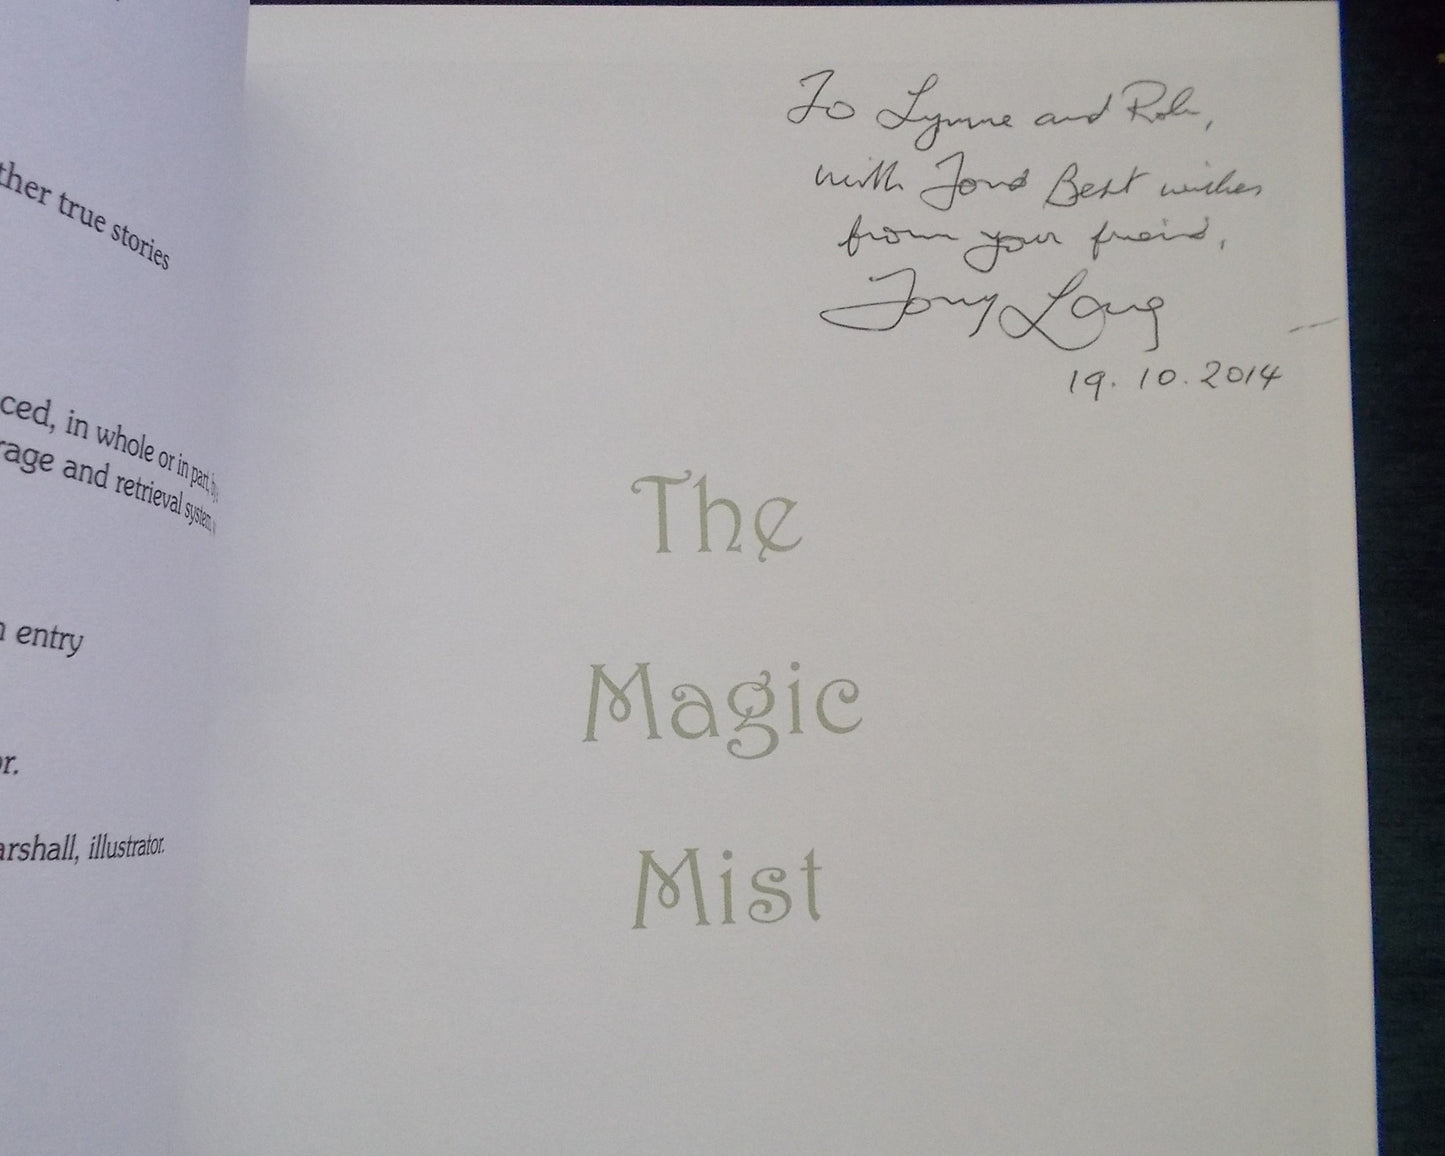 ther true stories
ced, in whole or in part,
rage and retrieval system
entry
or.
arshall, illustrator.
To Lynne and Rob,
with Fond Best wishes
from your friend,
Tony Long
19.10.2014
The
Magic
Mist